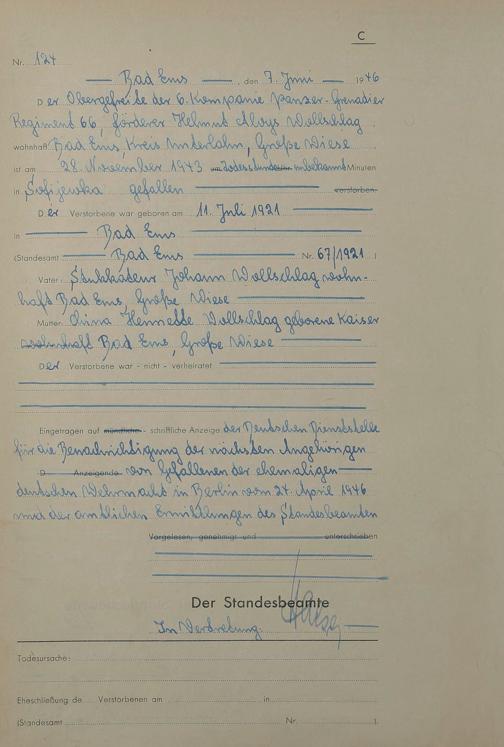 C
Nr. 124
Bad Ems, den 7. Juni 1946
Der Obergefreite der 6. Kompanie Panzer-Grenadier
Regiment 66, Förderer Helmut Aloys Wollschlag
wohnhaft Bad Ems, Kreis Unterlahn, Große Wiese
ist am 28. November 1943 um Todesstunde unbekannt Minuten
in Sofijewka gefallen verstorben.
Der Verstorbene war geboren am 11. Juli 1921
in Bad Ems
(Standesamt Bad Ems Nr. 67/1921 )
Vater: Stukkateur Johann Wollschlag wohn-
haft Bad Ems, Große Wiese
Mutter: Henriette Wollschlag geborene Kaiser
wohnhaft Bad Ems, Große Wiese
Der Verstorbene war - nicht - verheiratet
Eingetragen auf mündliche - schriftliche Anzeige der Deutschen Dienststelle
für die Benachrichtigung der nächsten Angehörigen
D Anzeigende von Gefallenen der ehemaligen
deutschen Wehrmacht in Berlin vom 24. April 1946
und der amtlichen Ermittlungen des Standesbeamten
Vorgelesen, genehmigt und unterschrieben
Der Standesbeamte
In Vertretung:
Todesursache:
Eheschließung de Verstorbenen am in
(Standesamt Nr. ).